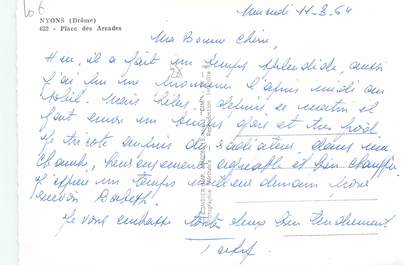 206
NYONS (Drôme)
622 - Place des Arcades
Mercredi 11-3-64
Ma Bonne Chérie,
Hier, il a fait un temps splendide, aussi
j'ai pu me promener l'après midi au
soleil. Mais hélas, depuis ce matin il
fait encore un temps gris et très froid.
Je tricote auprès du radiateur, dans ma
chambre, heureusement agréable et bien chauffée.
J'espère un temps meilleur demain pour
Je vous embrasse tous deux bien tendrement